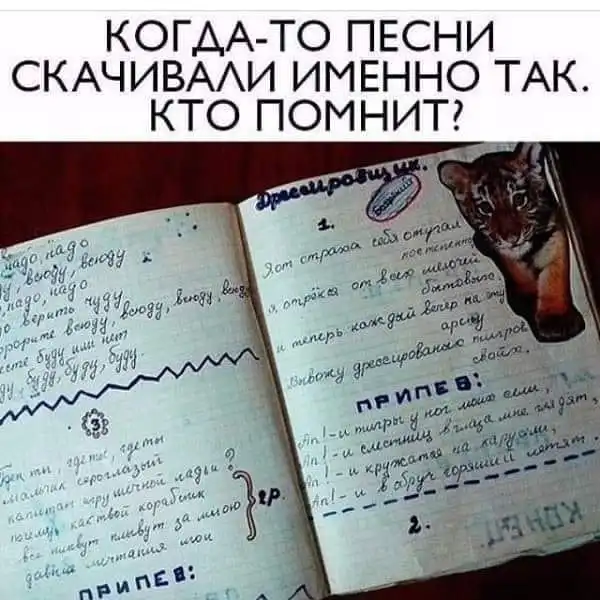 КОГДА-ТО ПЕСНИ
СКАЧИВАЛИ ИМЕННО ТАК.
КТО ПОМНИТ?
надо, надо
всюду, всюду
надо, надо
верить чуду
всюду, всюду, всюду
буду или нет
буду, буду, буду.
3
где ты, где ты
мальчик сероглазый
капитан игрушечной ладьи?
почему как твой кораблик
все плывут плывут за мною
давние мечтания мои
2р.
ПРИПЕВ:
Дрессировщик.
1.
Я от страха себя отучал
постепенно
Я отрёкся от всех мелочей
бытовых.
И теперь каждый вечер на эту
арену
Вывожу дрессированных тигров
своих.
ПРИПЕВ:
Ап! - и тигры у ног моих сели,
Ап! - и с лестниц в глаза мне глядят,
Ап! - и кружатся на карусели,
Ап! - и в обруч горящий летят.
2.